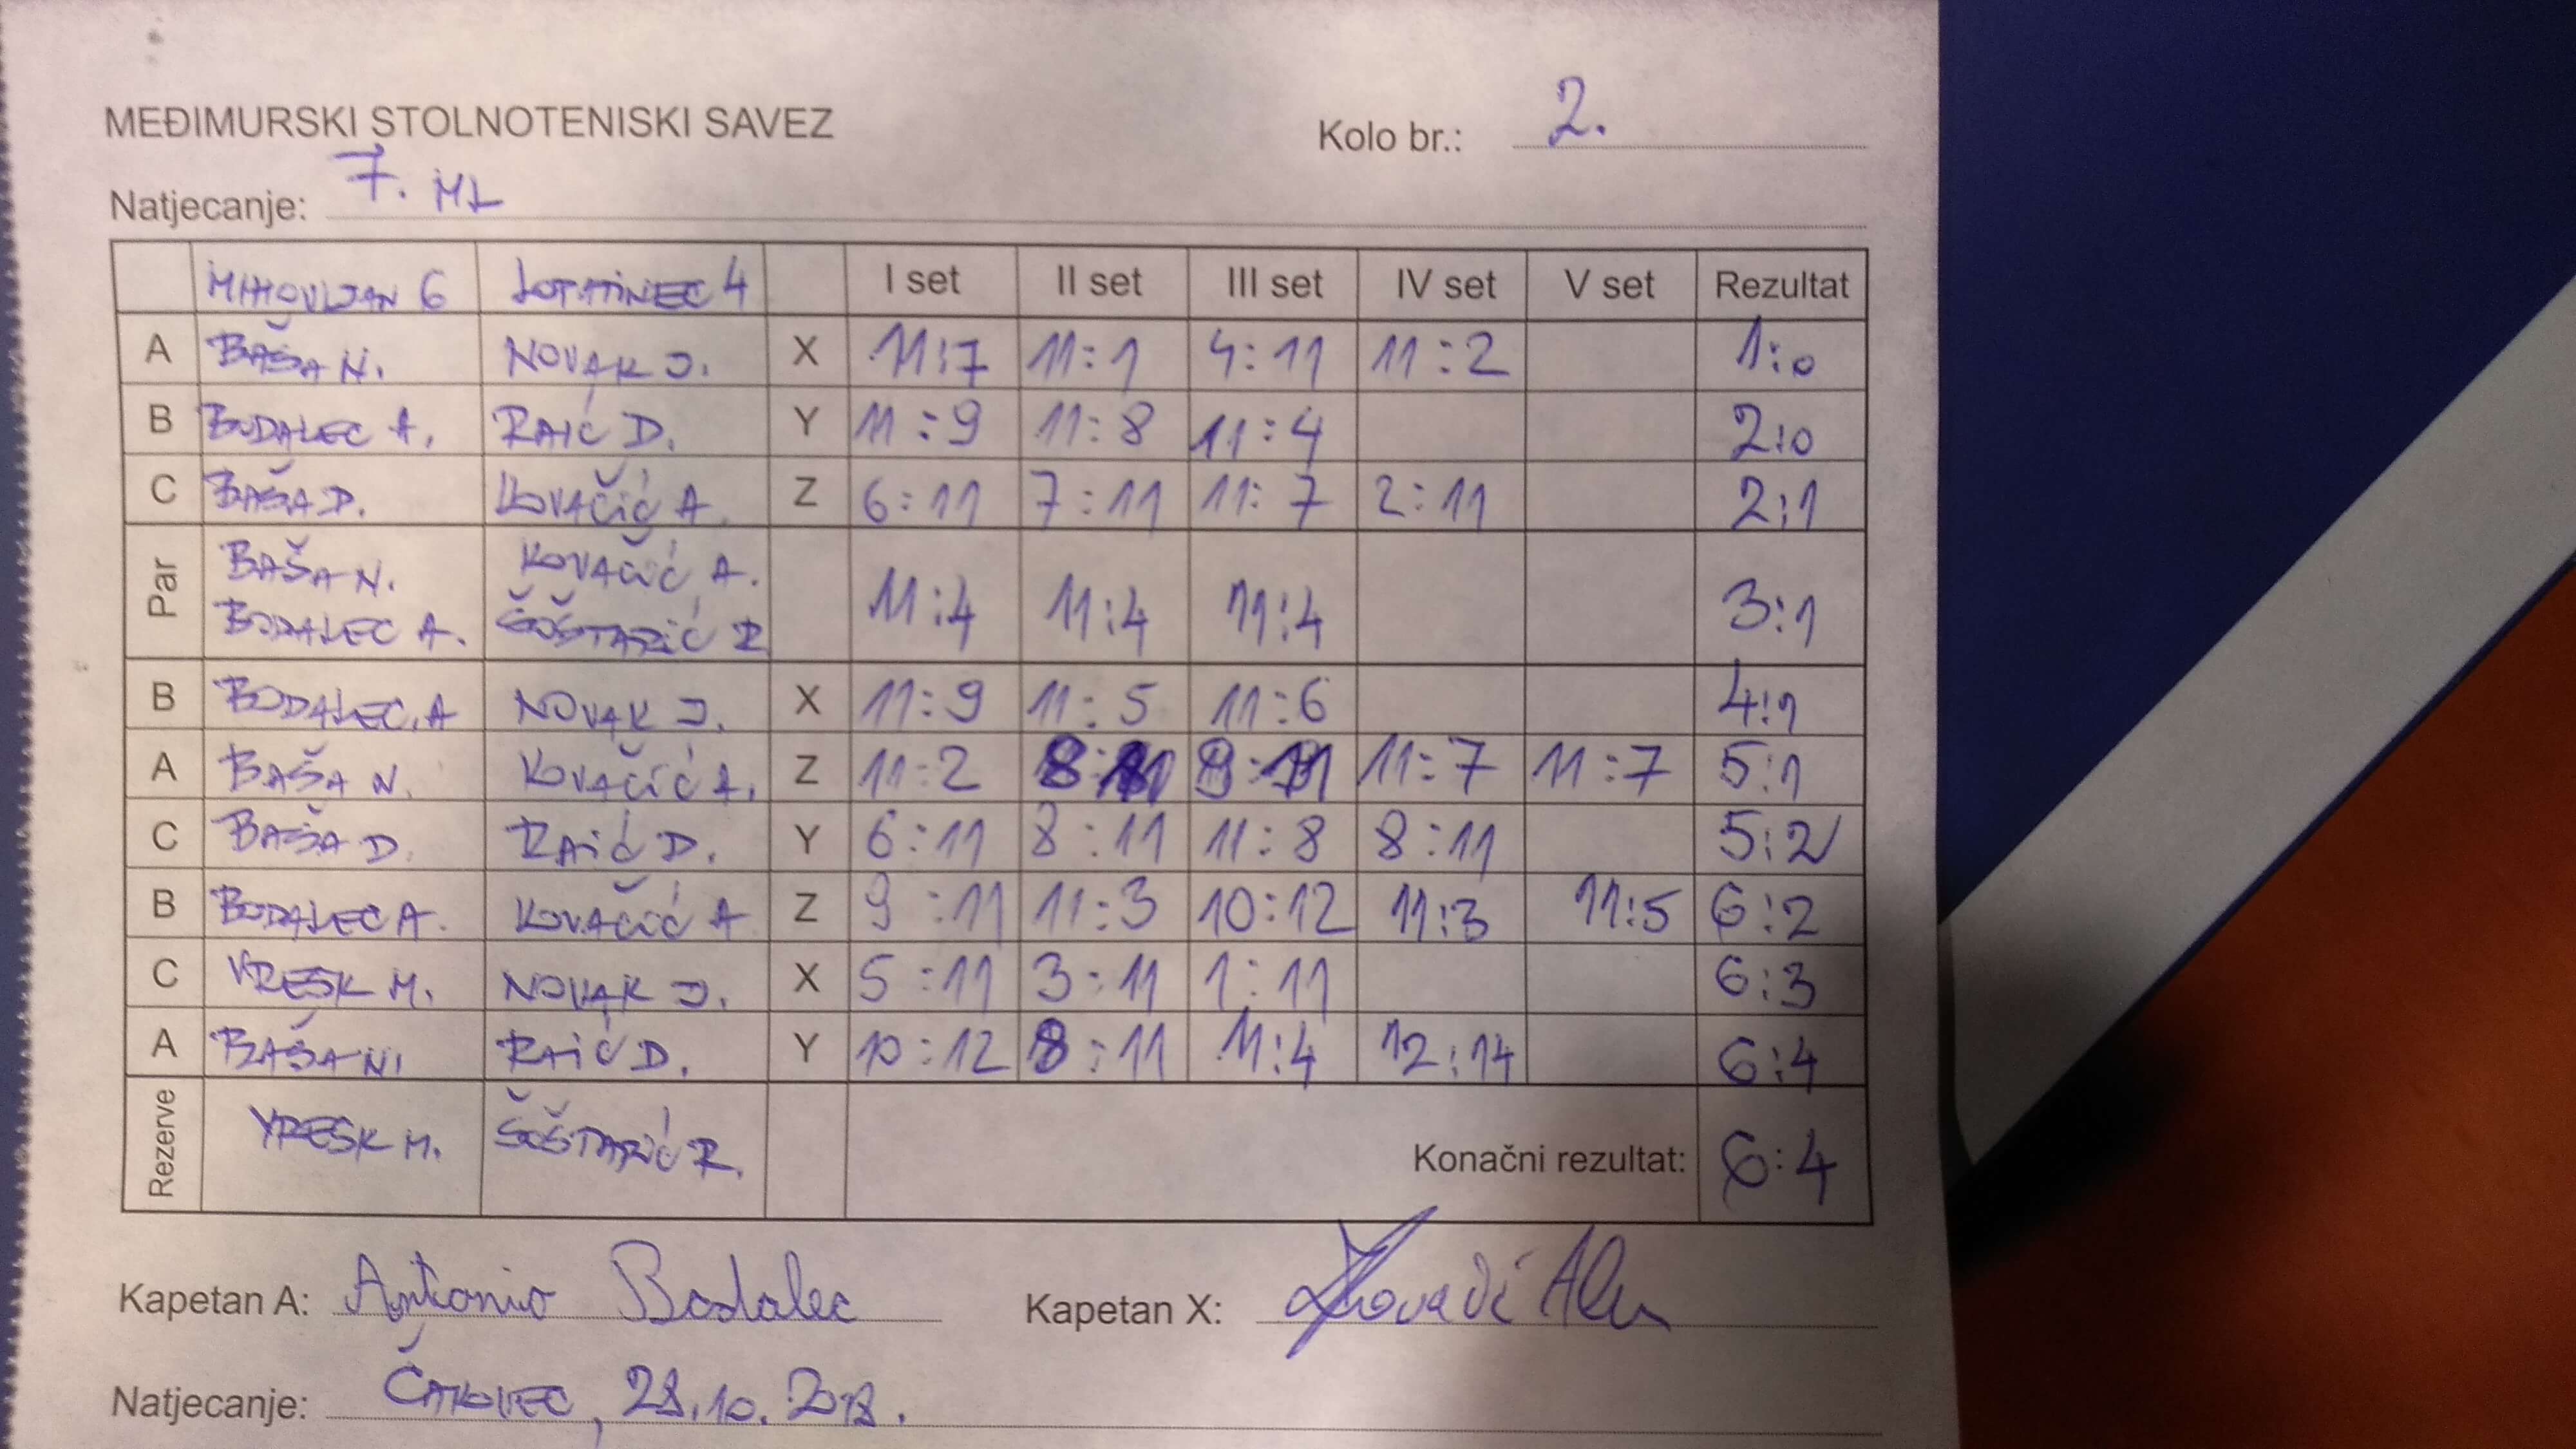 MEĐIMURSKI STOLNOTENISKI SAVEZ
Kolo br.: 2.
Natjecanje: 7. ML
MIHOVLJAN 6 LOPATINEC 4 I set II set III set IV set V set Rezultat
A BAŠA N. NOVAK J. X 11:7 11:1 4:11 11:2 1:0
B BODALEC A. RAIĆ D. Y 11:9 11:8 11:4 2:0
C BAŠA D. KOVAČIĆ A. Z 6:11 7:11 11:7 2:11 2:1
Par BAŠA N. KOVAČIĆ A.
BODALEC A. ŠOŠTARIĆ R 11:4 11:4 11:4 3:1
B BODALEC.A NOVAK J. X 11:9 11:5 11:6 4:1
A BAŠA N. KOVAČIĆ A. Z 11:2 8:11 9:11 11:7 11:7 5:1
C BAŠA D. RAIĆ D. Y 6:11 8:11 11:8 8:11 5:2
B BODALEC A. KOVAČIĆ A Z 9:11 11:3 10:12 11:3 11:5 6:2
C VRESK M. NOVAK J. X 5:11 3:11 1:11 6:3
A BAŠA N. RAIĆ D. Y 10:12 8:11 11:4 12:14 6:4
Rezerve VRESK M. ŠOŠTARIĆ R. Konačni rezultat: 6:4
Kapetan A: Antonio Bodalec Kapetan X:
Natjecanje: ČAKOVEC, 28.10.2018.